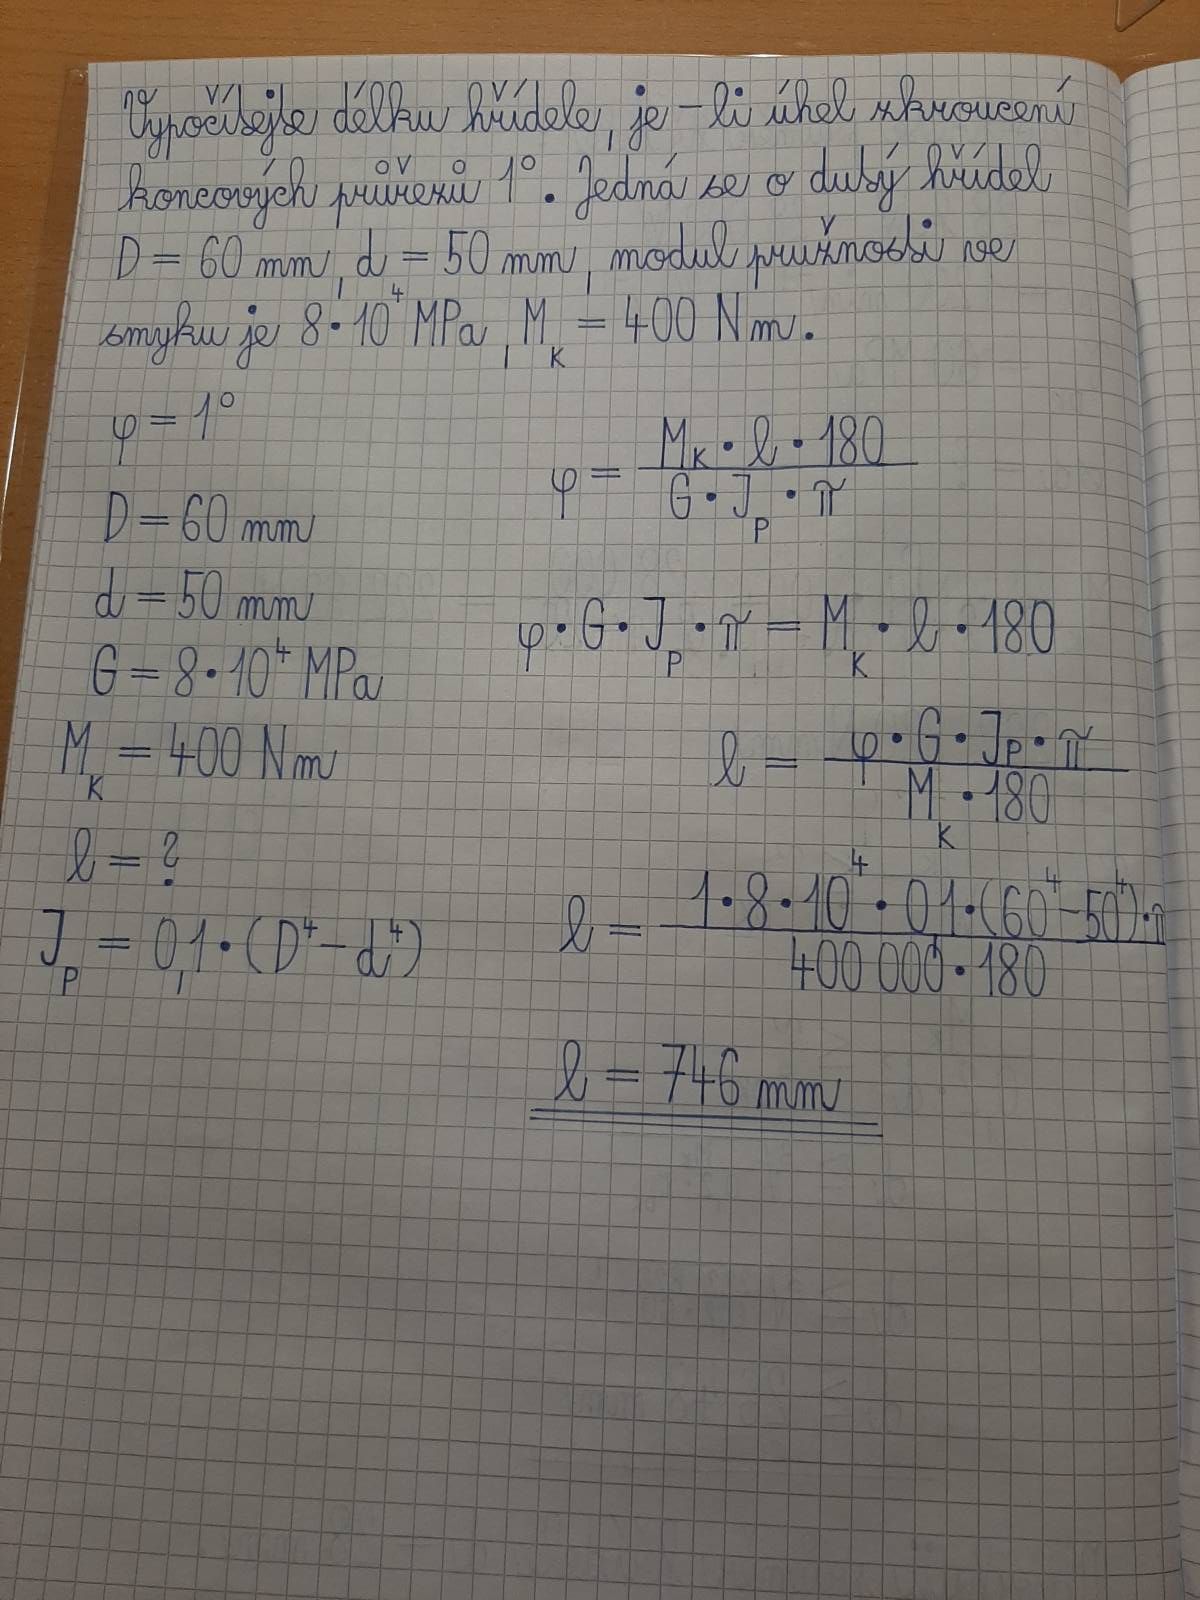 Vypočítejte délku hřídele, je-li úhel zkroucení
koncových průřezů 1°. Jedná se o dutý hřídel
D = 60 mm, d = 50 mm, modul pružnosti ve
smyku je 8·10⁴ MPa, Mₖ = 400 Nm.
φ = 1°
D = 60 mm
d = 50 mm
G = 8·10⁴ MPa
Mₖ = 400 Nm
l = ?
Jₚ = 0,1·(D⁴-d⁴)
φ = (Mₖ·l·180)/(G·Jₚ·π)
φ·G·Jₚ·π = Mₖ·l·180
l = (φ·G·Jₚ·π)/(Mₖ·180)
l = (1·8·10⁴·0,1·(60⁴-50⁴)·π)/(400 000·180)
l = 746 mm